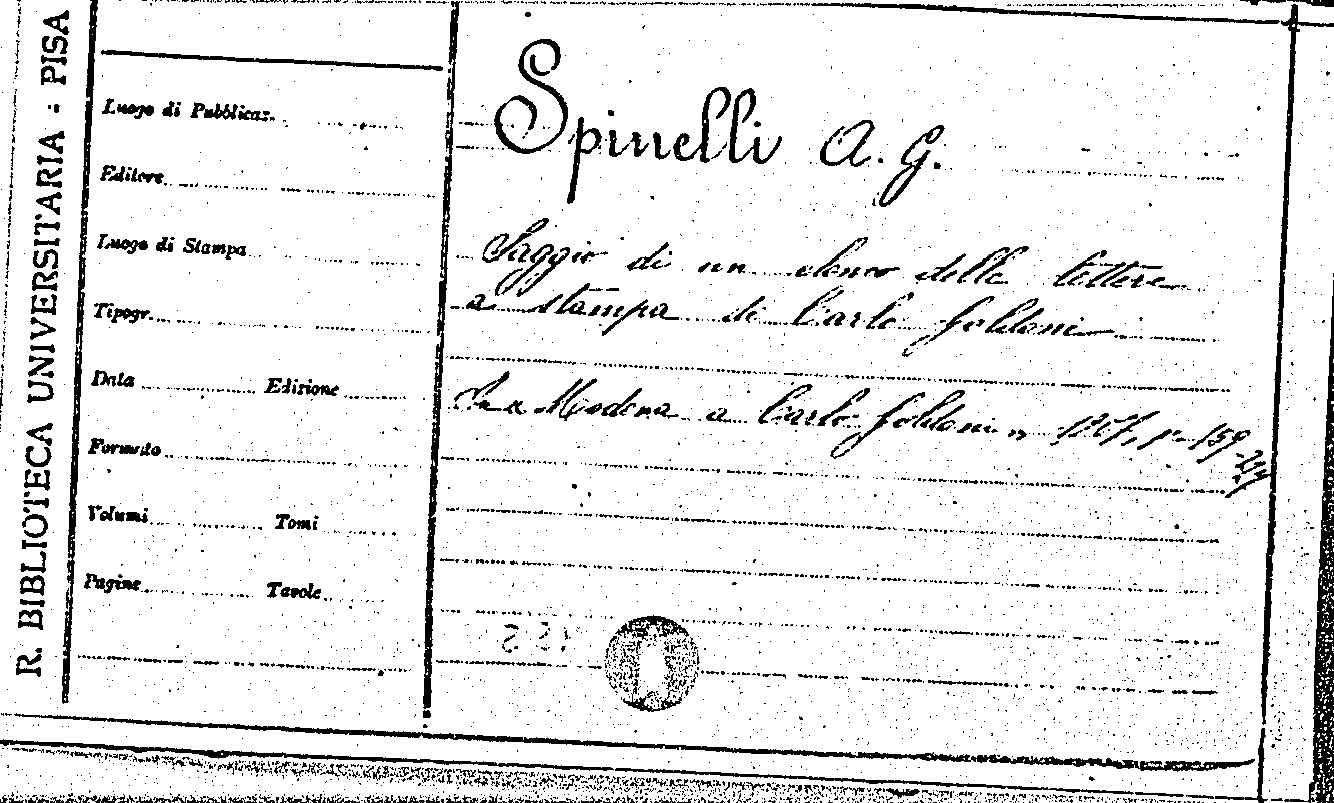 R. BIBLIOTECA UNIVERSITARIA - PISA
Luogo di Pubblicaz.
Editore
Luogo di Stampa
Tipogr.
Data Edizione
Formato
Volumi Tomi
Pagine Tavole
Spinelli A. G.
Saggio di un elenco delle lettere
a stampa di Carlo Goldoni
In "Modena a Carlo Goldoni", p. 159